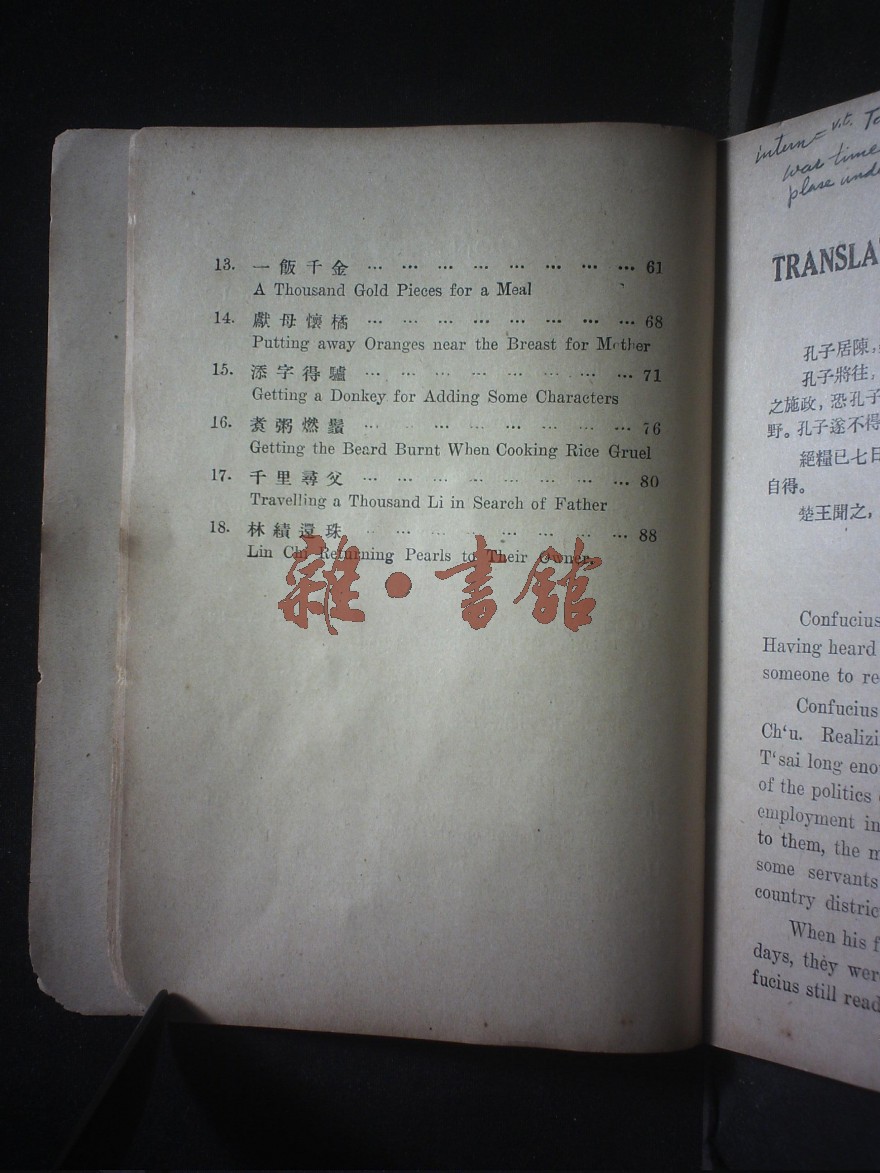 13. 一飯千金 … … … … … … … … 61
A Thousand Gold Pieces for a Meal
14. 獻母懷橘 … … … … … … … … 68
Putting away Oranges near the Breast for Mother
15. 添字得驢 … … … … … … … … 71
Getting a Donkey for Adding Some Characters
16. 煑粥燃鬚 … … … … … … … … 76
Getting the Beard Burnt When Cooking Rice Gruel
17. 千里尋父 … … … … … … … … 80
Travelling a Thousand Li in Search of Father
18. 林績還珠 … … … … … … … … 88
Lin Chi Returning Pearls to Their Owner.
雜·書館
intern = v.t. To
war time
plase unde
TRANSLA
孔子居陳,
孔子將往,
之施政，恐孔子
野。孔子遂不得
絕糧已七日
自得。
楚王聞之，
Confucius
Having heard
someone to re
Confucius
Ch‘u. Realizi
T‘sai long eno
of the politics
employment in
to them, the m
some servants
country distric
When his f
days, they wer
fucius still read